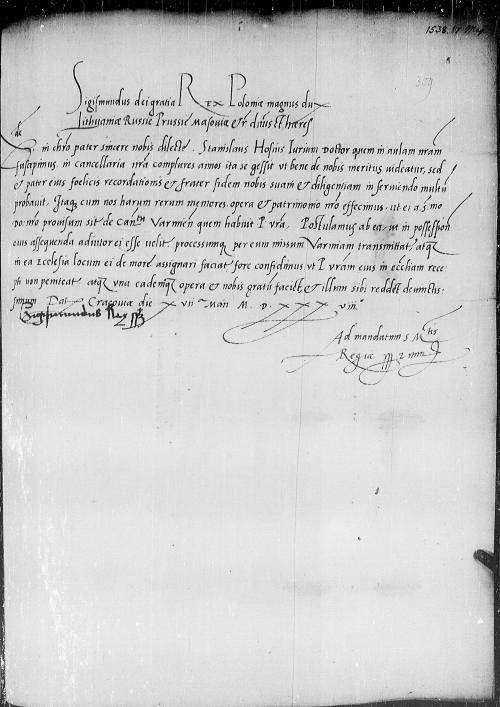 1538. 17 May
309
Sigismundus dei gratia Rex Poloniæ magnus dux
Lithuaniæ Russiæ Prussiæ Masouiæ etc dnus et hæres
Rde in chro pater sincere nobis dilecte. Stanislaus Hosius Iurium Doctor quem in aulam nram
suscepimus, in cancellaria nra complures annos ita se gessit vt bene de nobis meritus uideatur, sed
et pater eius foelicis recordationis et frater fidem nobis suam et diligentiam in seruiendo multu
probauit. Itaq cum nos harum rerum memores, opera et patrimonio nro effecimus, ut ei a s mo
Dno nro prouisum sit de Cantu Varmien quem habuit P vra. Postulamus ab ea, ut in possession
eius assequenda adiutor ei esse uelit, processumq per eum missum Varmiam transmittat, atq
in ea Ecclesia locum ei de more assignari faciat, fore confidimus vt P vram eius in ecciam rece
pti non peniteat, atq vna eademq opera et nobis gratu faciet, et illum sibi reddet deuinctis
simum Dat Cracouiæ die x vii ma Maii M. D. x x x viii.
Sigismundus Rex sst
Ad mandatum S Mtis
Regiæ